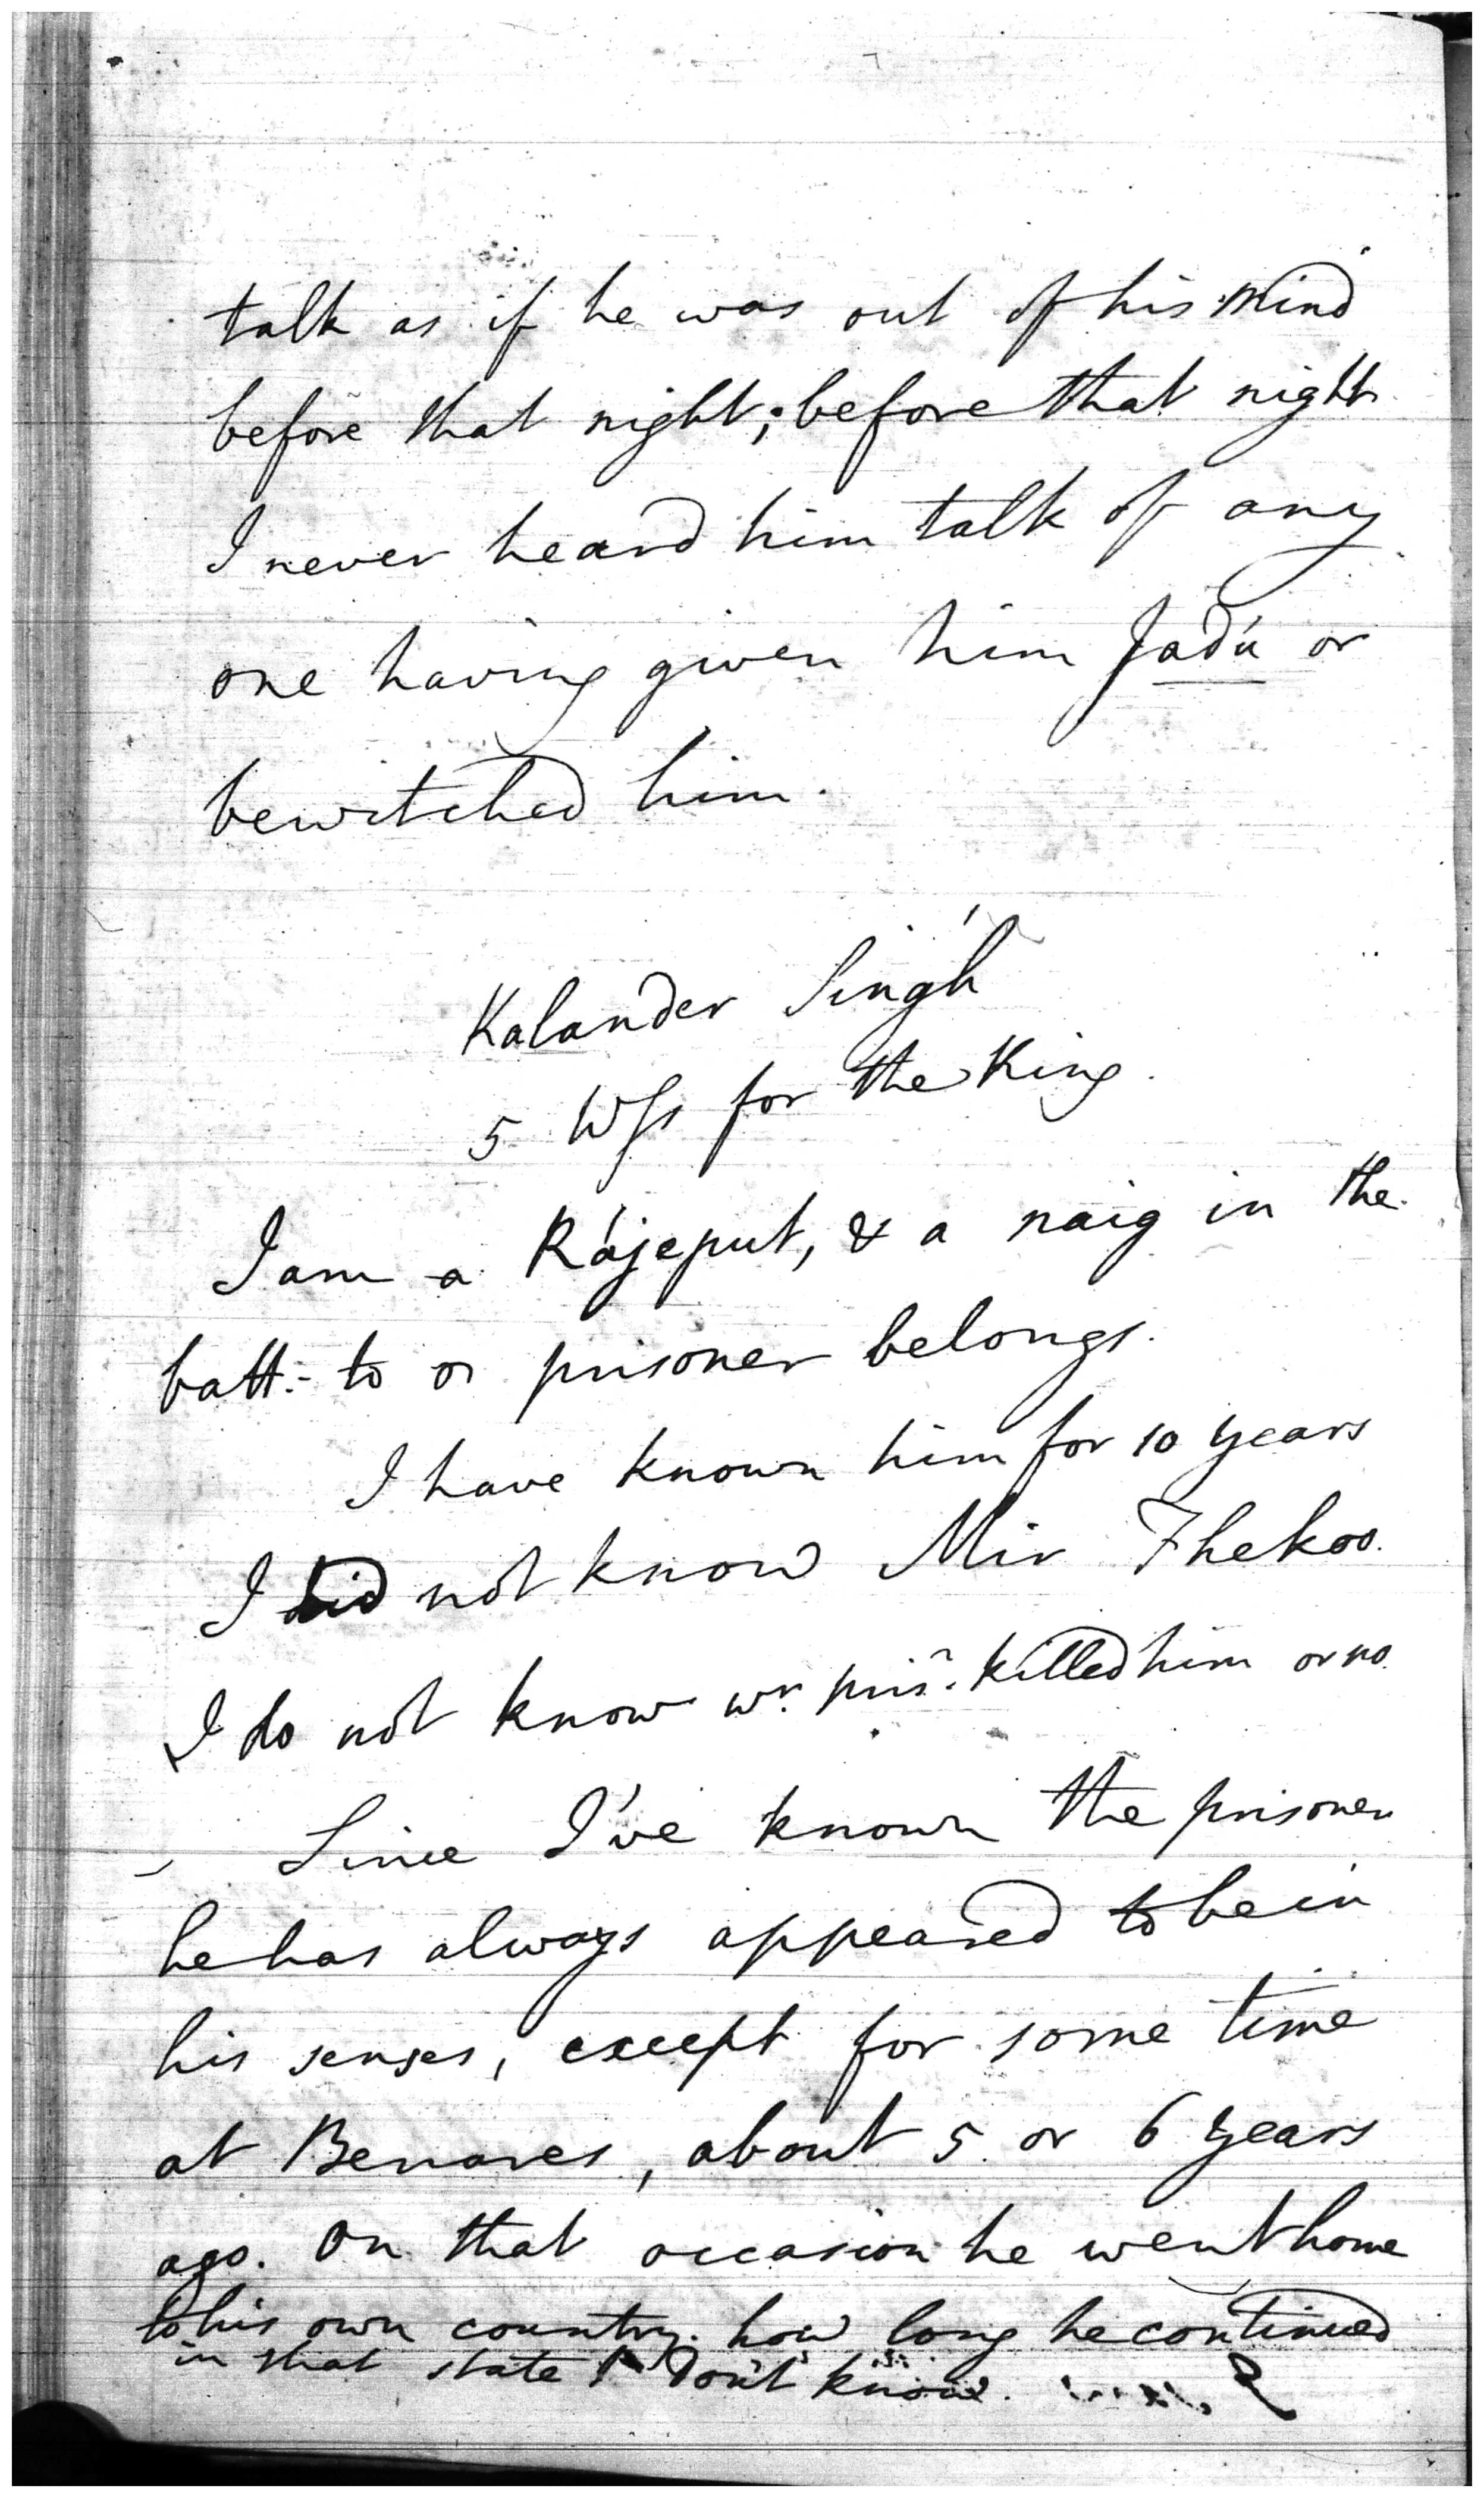 talk as if he was out of his mind
before that night; before that night
I never heard him talk of any
one having given him Jadú or
bewitched him.
Kalander Singh
5 Wss for the King.
I am a Rájeput, & a naig in the
batt:- to prisoner belongs.
I have known him for 10 years
I did not know Mir Thekoo.
I do not know wr. prisr. killed him or no.
Since I've known the prisoner
he has always appeared to be in
his senses, except for some time
at Benares, about 5 or 6 years
ago. On that occasion he went home
to his own country. how long he continued
in that state I don't know.